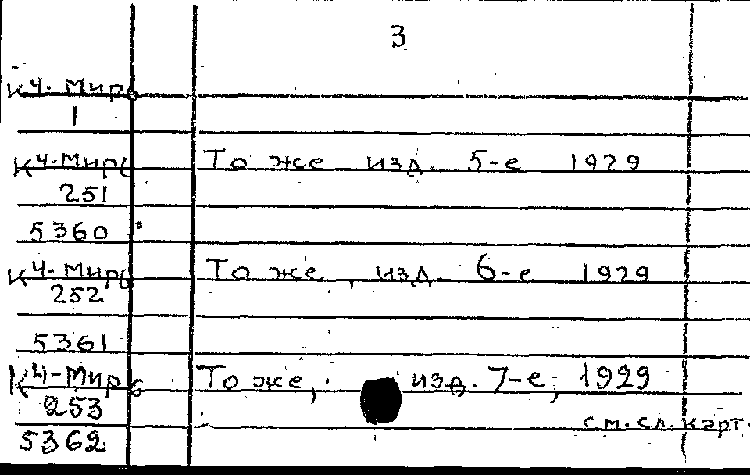 3
К4-Мирс
1
К4-Мирс То же изд. 5-е 1929
251
5360
К4-Мирс То же, изд. 6-е 1929
252
5361
К4-Мирс То же, изд. 7-е, 1929
253
см. сл. карт.
5362